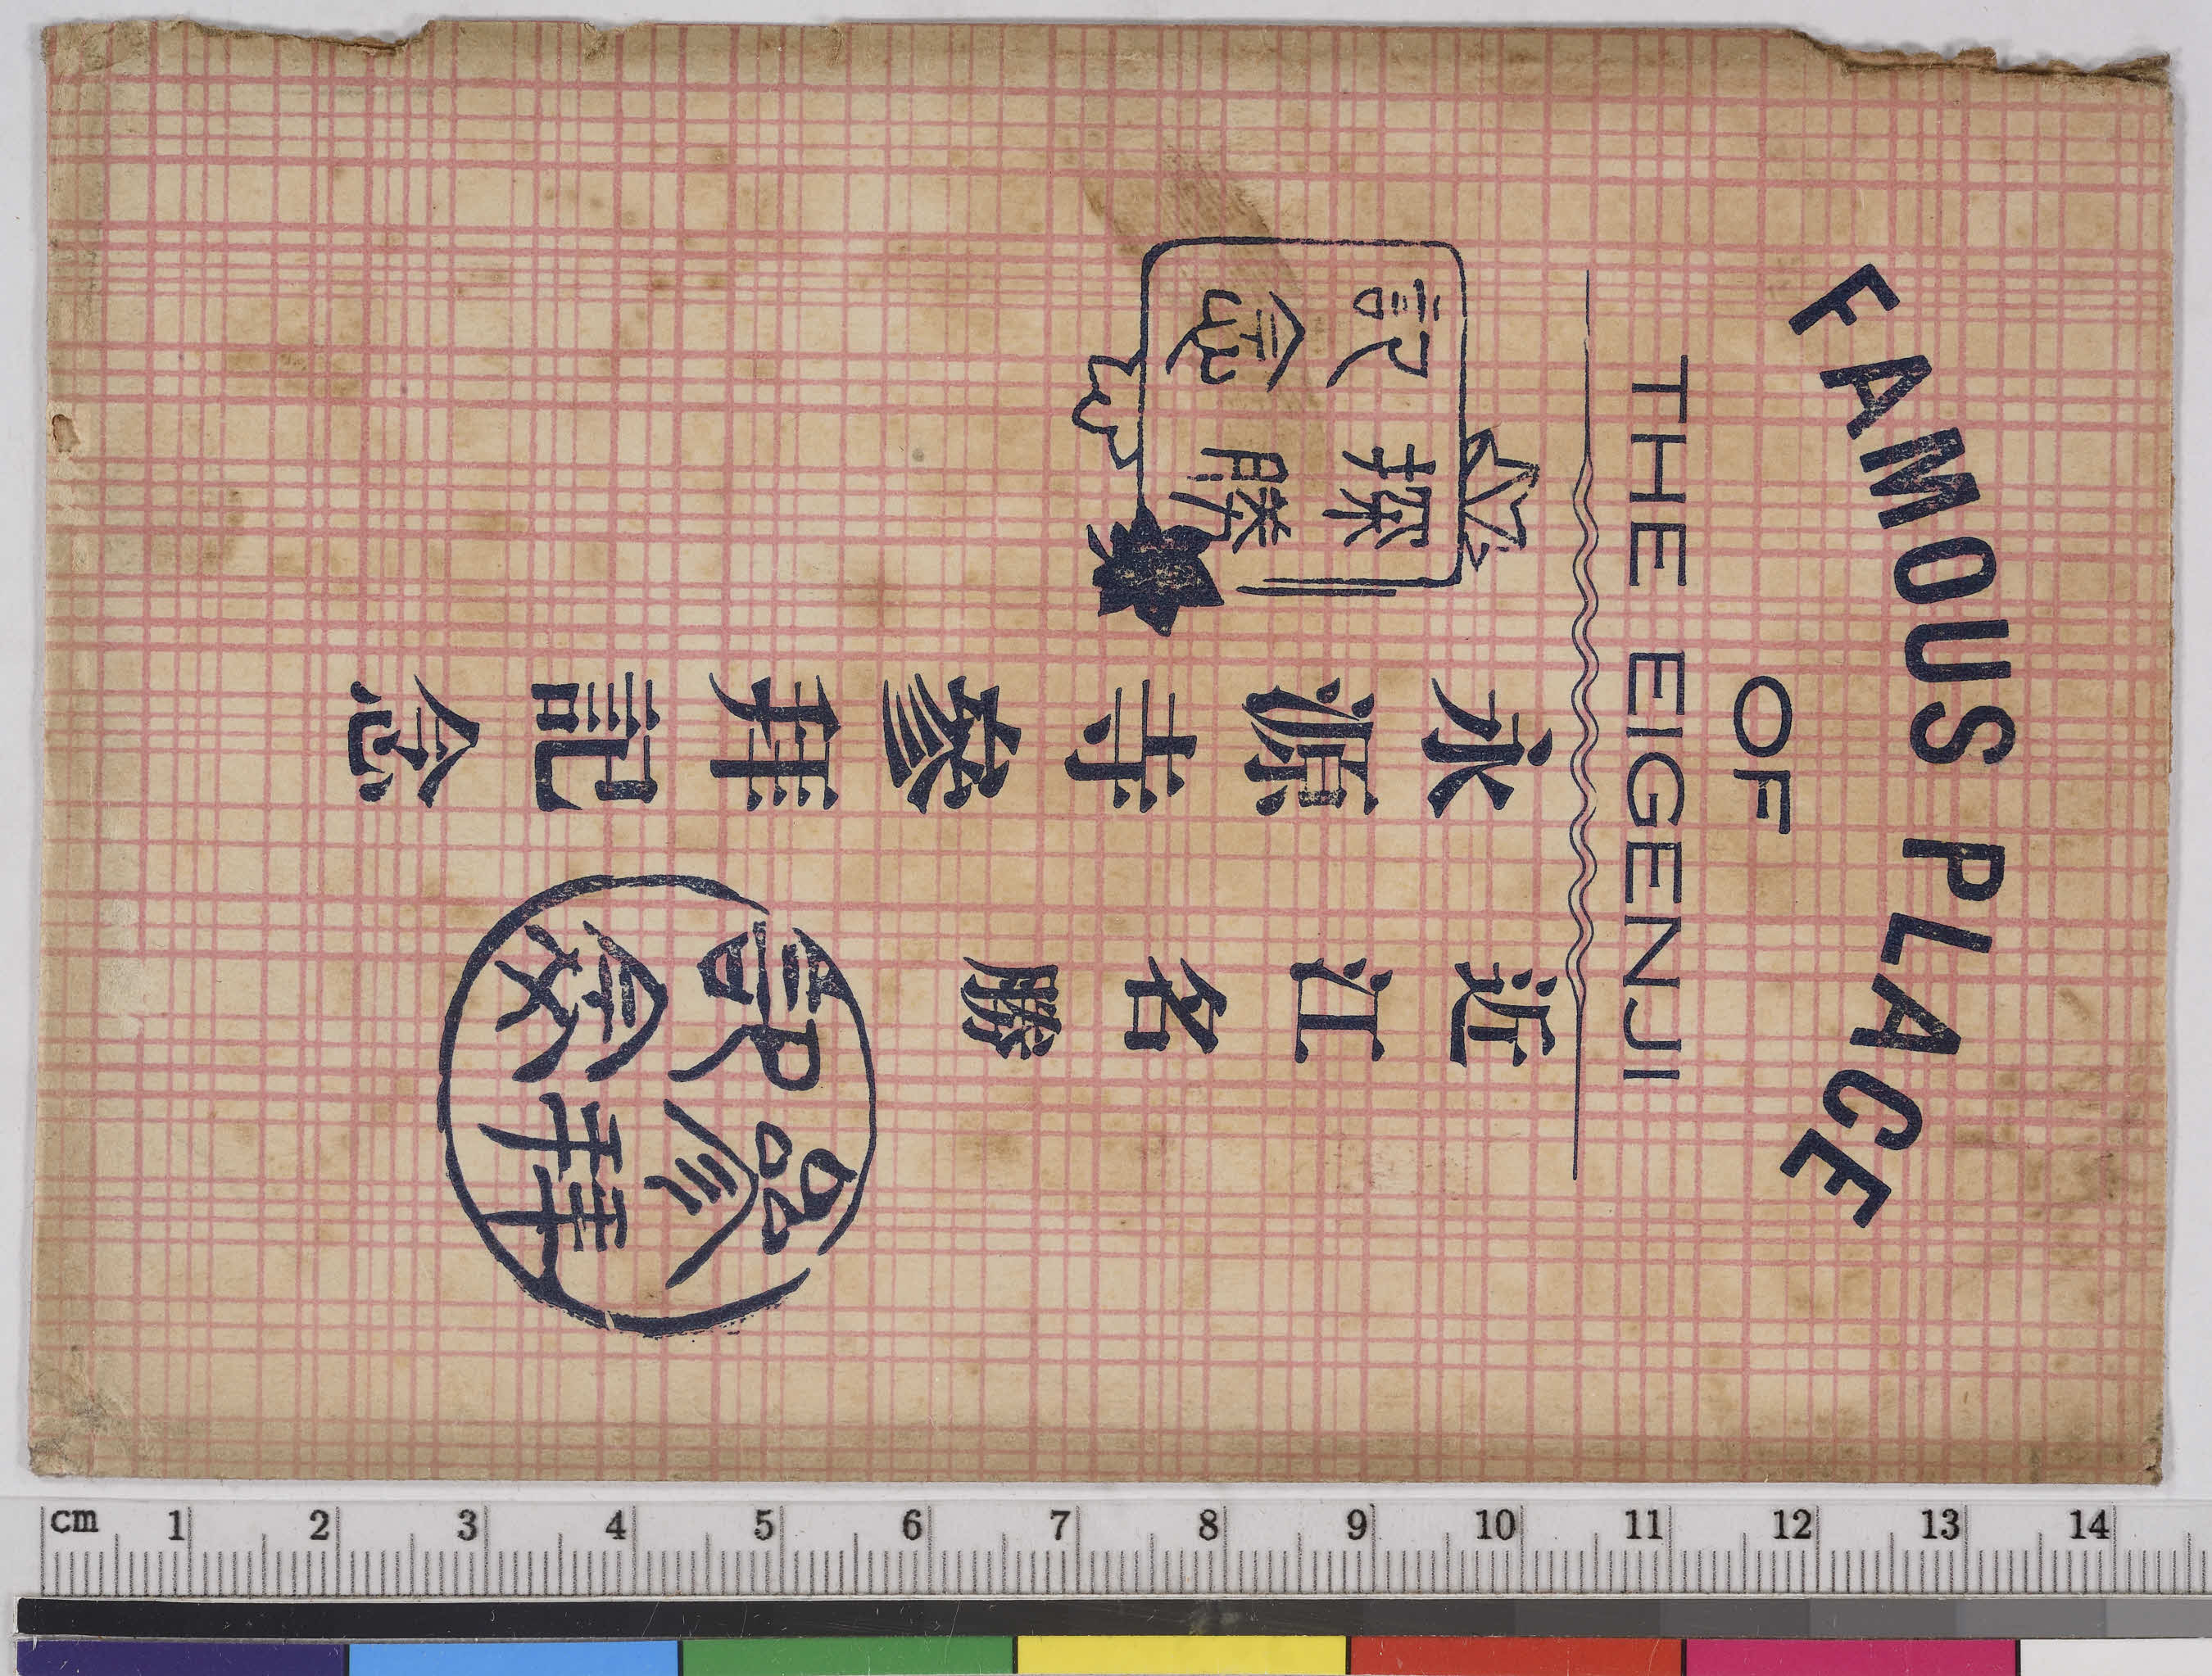 FAMOUS PLACE
OF
THE EIGENJI
近江名勝
永源寺參拜記念
探勝
記念
參拜
記念
cm 1 2 3 4 5 6 7 8 9 10 11 12 13 14